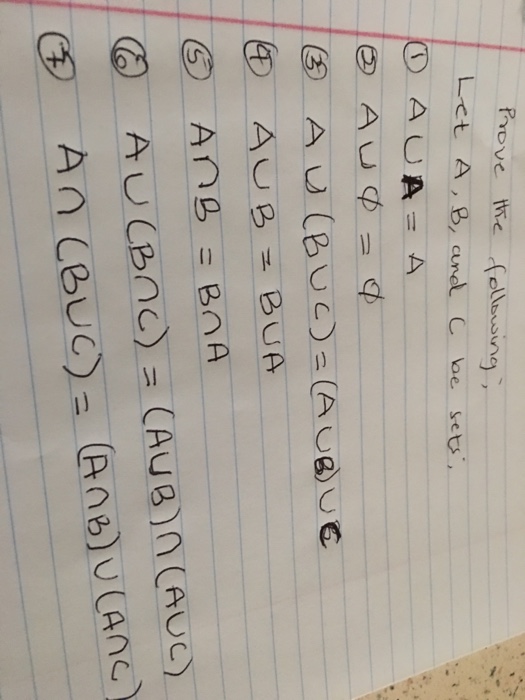 Prove the following;
Let A, B, and C be sets.
① A ∪ A = A
② A ∪ ∅ = ∅
③ A ∪ (B ∪ C) = (A ∪ B) ∪ C
④ A ∪ B = B ∪ A
⑤ A ∩ B = B ∩ A
⑥ A ∪ (B ∩ C) = (A ∪ B) ∩ (A ∪ C)
⑦ A ∩ (B ∪ C) = (A ∩ B) ∪ (A ∩ C)